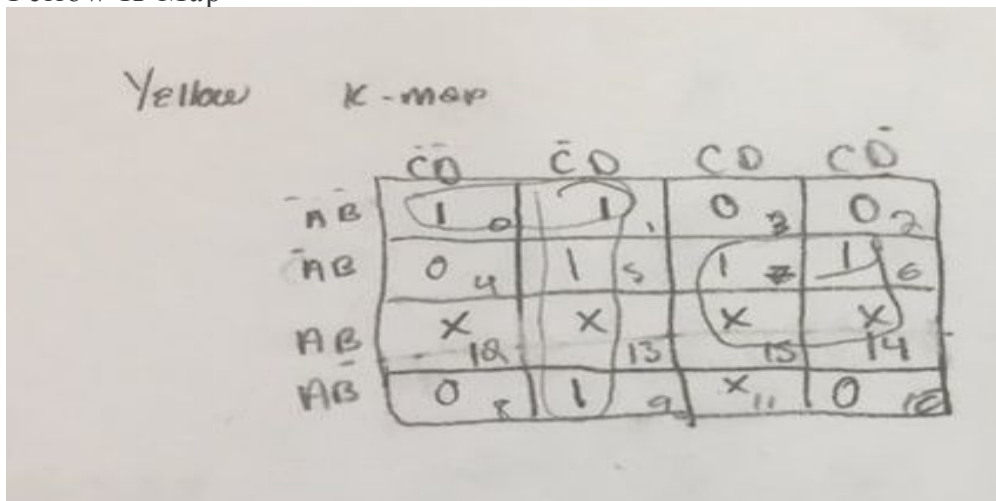 Yellow K-map
C̄D̄ C̄D CD CD̄
ĀB̄ 1 0 1 1 0 3 0 2
ĀB 0 4 1 5 1 7 1 6
AB X 12 X 13 X 15 X 14
AB̄ 0 8 1 9 X 11 0 10